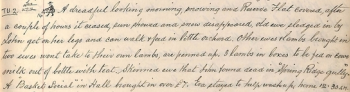 Tu 2. A dreadful looking morning snowing and Rivers Flat covered, after
a couple of hours it ceased, sun shone and snow disappeared, old ewe sledged in by
John got on her legs and can walk & fed in little orchard. Other ewes & lambs brought in
two ewes wont take to their own lambs, are penned up. 3 lambs in boxes to be fed on cows
milk out of bottle with teat. Skinned ewe that John found dead in Spring Ridge gully.
A Basket Social in Hall brought in over £7. Tea stayed to help wash up, home 12.30 a.m.